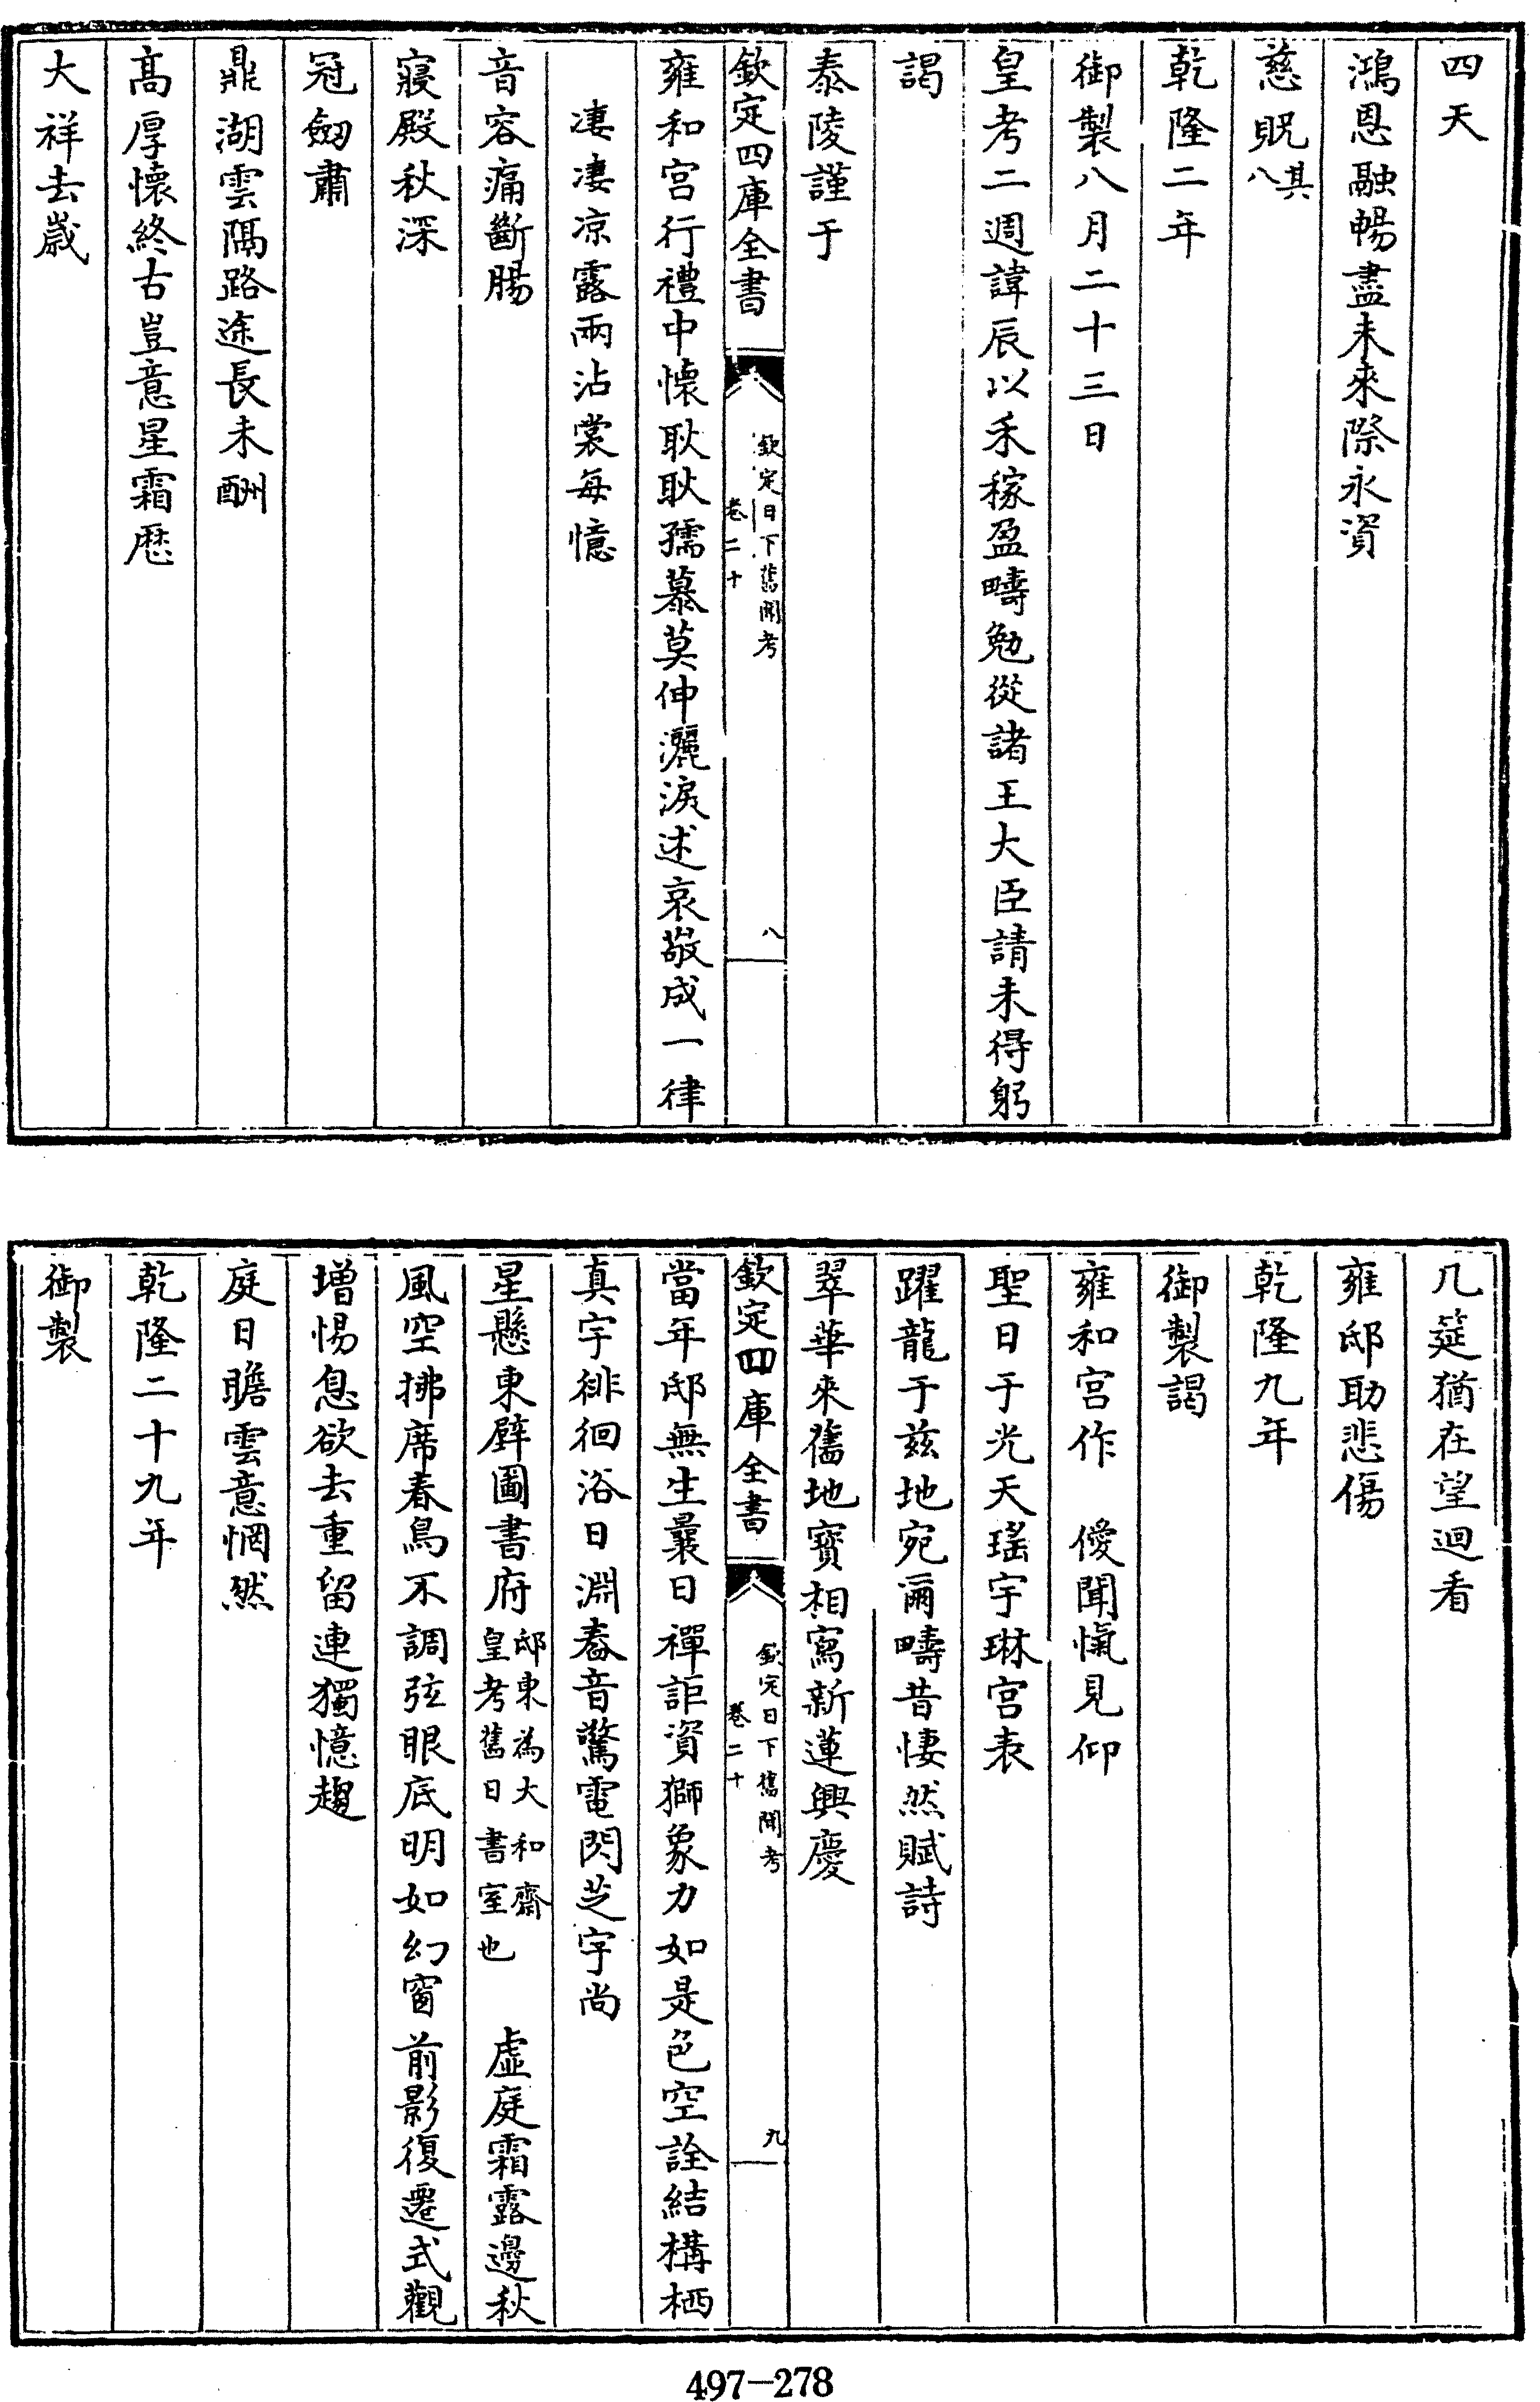 四天
鴻恩融暢盡未來際永資
慈貺其八
乾隆二年
御製八月二十三日
皇考二週諱辰以禾稼盈疇勉從諸王大臣請未得躬
謁
泰陵謹于
欽定四庫全書
欽定日下舊聞考
卷二十
八
雍和宮行禮中懷耿耿孺慕莫伸灑淚述哀敬成一律
凄凄凉露兩沾裳每憶
音容痛斷腸
寢殿秋深
冠劒肅
鼎湖雲隔路途長未酬
髙厚懷終古豈意星霜歷
大祥去歲
几筵猶在望迴看
雍邸助悲傷
乾隆九年
御製謁
雍和宮作　僾聞愾見仰
聖日于光天瑤宇琳宮表
躍龍于兹地宛爾疇昔悽然賦詩
翠華來舊地寳相寫新蓮興慶
欽定四庫全書
欽定日下舊聞考
卷二十
九
當年邸無生曩日禪詎資獅象力如是色空詮結構栖
真宇徘徊浴日淵春音驚電閃芝字尚
星懸東壁圖書府邸東為大和齋皇考舊日書室也　虛庭霜露邊秋
風空拂席春鳥不調弦眼底明如幻窗前影復遷式觀
增惕息欲去重留連獨憶趨
庭日瞻雲意惘然
乾隆二十九年
御製
497-278